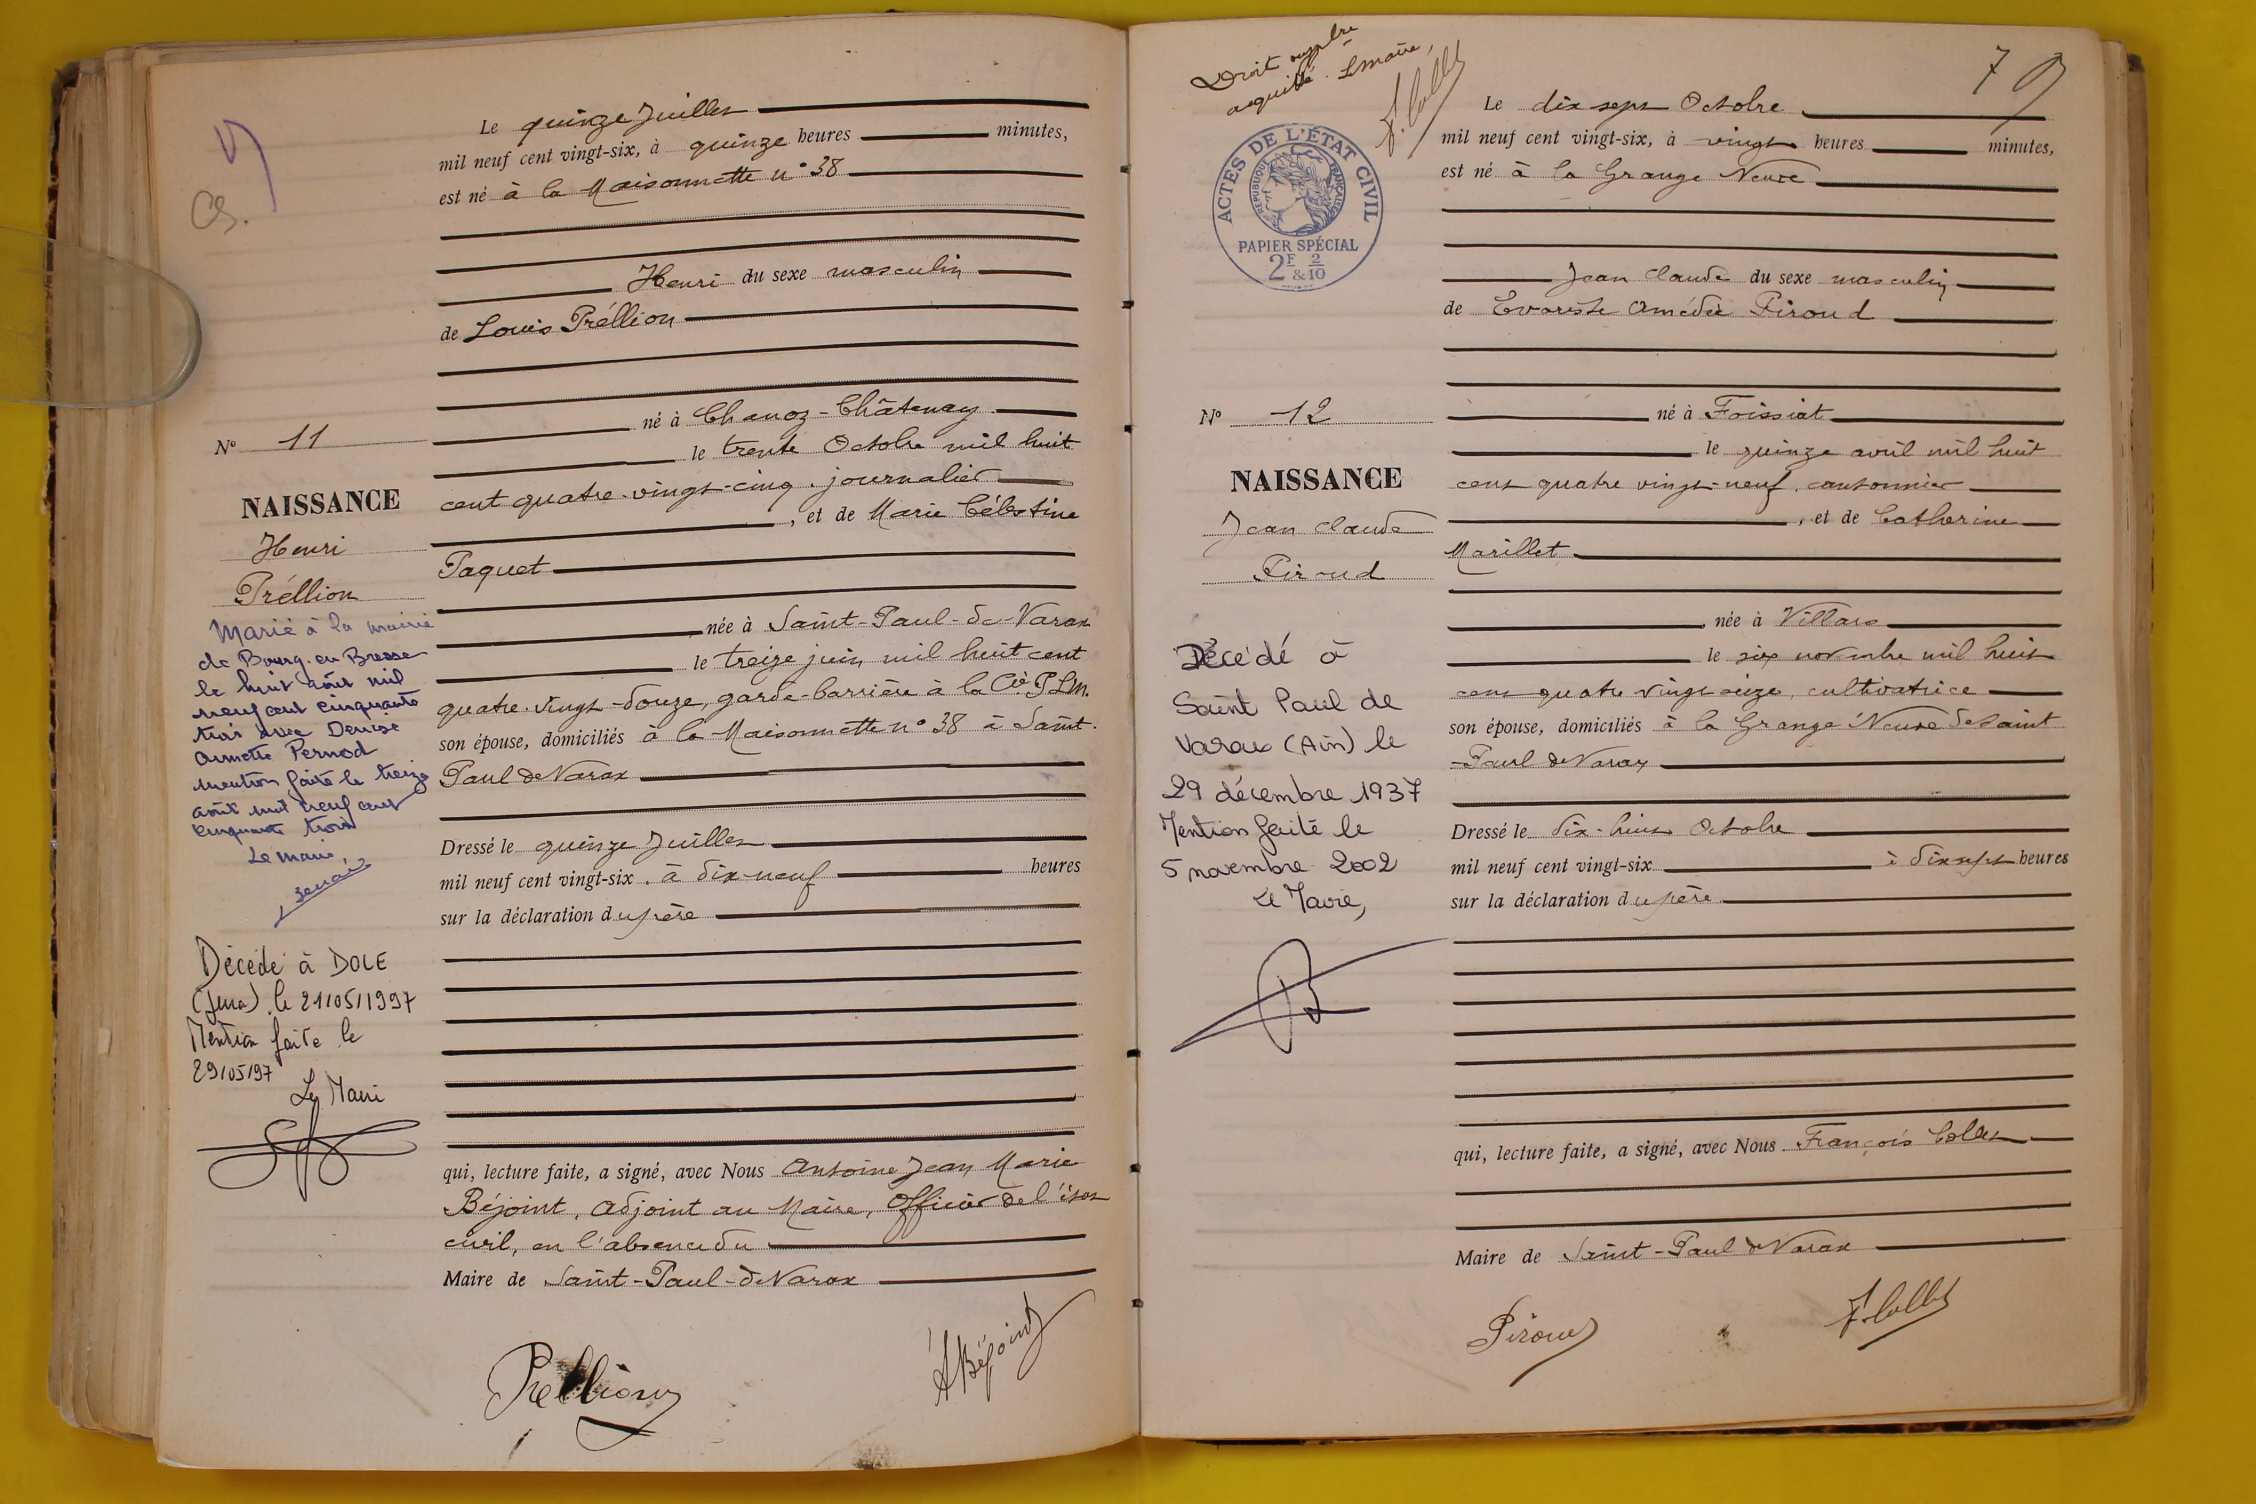 Le quinze Juillet
mil neuf cent vingt-six, à quinze heures minutes,
est né à la Maisonnette n° 38
Henri du sexe masculin
de Louis Préllion
né à Chanoz-Châtenay
N° 11
le trente Octobre mil huit
cent quatre-vingt-cinq, journalier
NAISSANCE
, et de Marie Célestine
Henri
Paquet
Préllion
née à Saint-Paul-de-Varax
le treize juin mil huit cent
quatre-vingt-douze, garde-barrière à la Cie P.L.M.
son épouse, domiciliés à la Maisonnette n° 38 à Saint-
Paul de Varax
Marié à la mairie
de Bourg-en-Bresse
le huit août mil
neuf cent cinquante
trois avec Denise
Annette Pernod
mention faite le treize
août mil neuf cent
cinquante trois
Le maire,
Dressé le quinze Juillet
mil neuf cent vingt-six, à dix-neuf heures
sur la déclaration du père
Décédé à DOLE
(Jura) le 21/05/1997
Mention faite le
29/05/97
Le Maire
qui, lecture faite, a signé, avec Nous Antoine Jean Marie
Béjoint, adjoint au Maire, Officier de l'état
civil, en l'absence du
Maire de Saint-Paul-de Varax
Préllion
A Béjoint
Droit
acquitté. Le maire,
F. Collet
7
ACTES DE L'ÉTAT CIVIL
RÉPUBLIQUE FRANÇAISE
PAPIER SPÉCIAL
2F & 2/10
Le dix sept Octobre
mil neuf cent vingt-six, à vingt heures minutes,
est né à la Grange Neuve
Jean Claude du sexe masculin
de Evariste Amédée Piroud
N° 12
né à Foissiat
le quinze avril mil huit
NAISSANCE
cent quatre vingt-neuf, cantonnier
Jean Claude
, et de Catherine
Piroud
Marillet
née à Villars
le six novembre mil huit
cent quatre vingt seize, cultivatrice
son épouse, domiciliés à la Grange Neuve de Saint
-Paul de Varax
Décédé à
Saint Paul de
Varax (Ain) le
29 décembre 1937
Mention faite le
5 novembre 2002
Le Maire,
Dressé le dix-huit Octobre
mil neuf cent vingt-six à dix sept heures
sur la déclaration du père
qui, lecture faite, a signé, avec Nous François Collet
Maire de Saint-Paul de Varax
Piroud
F. Collet